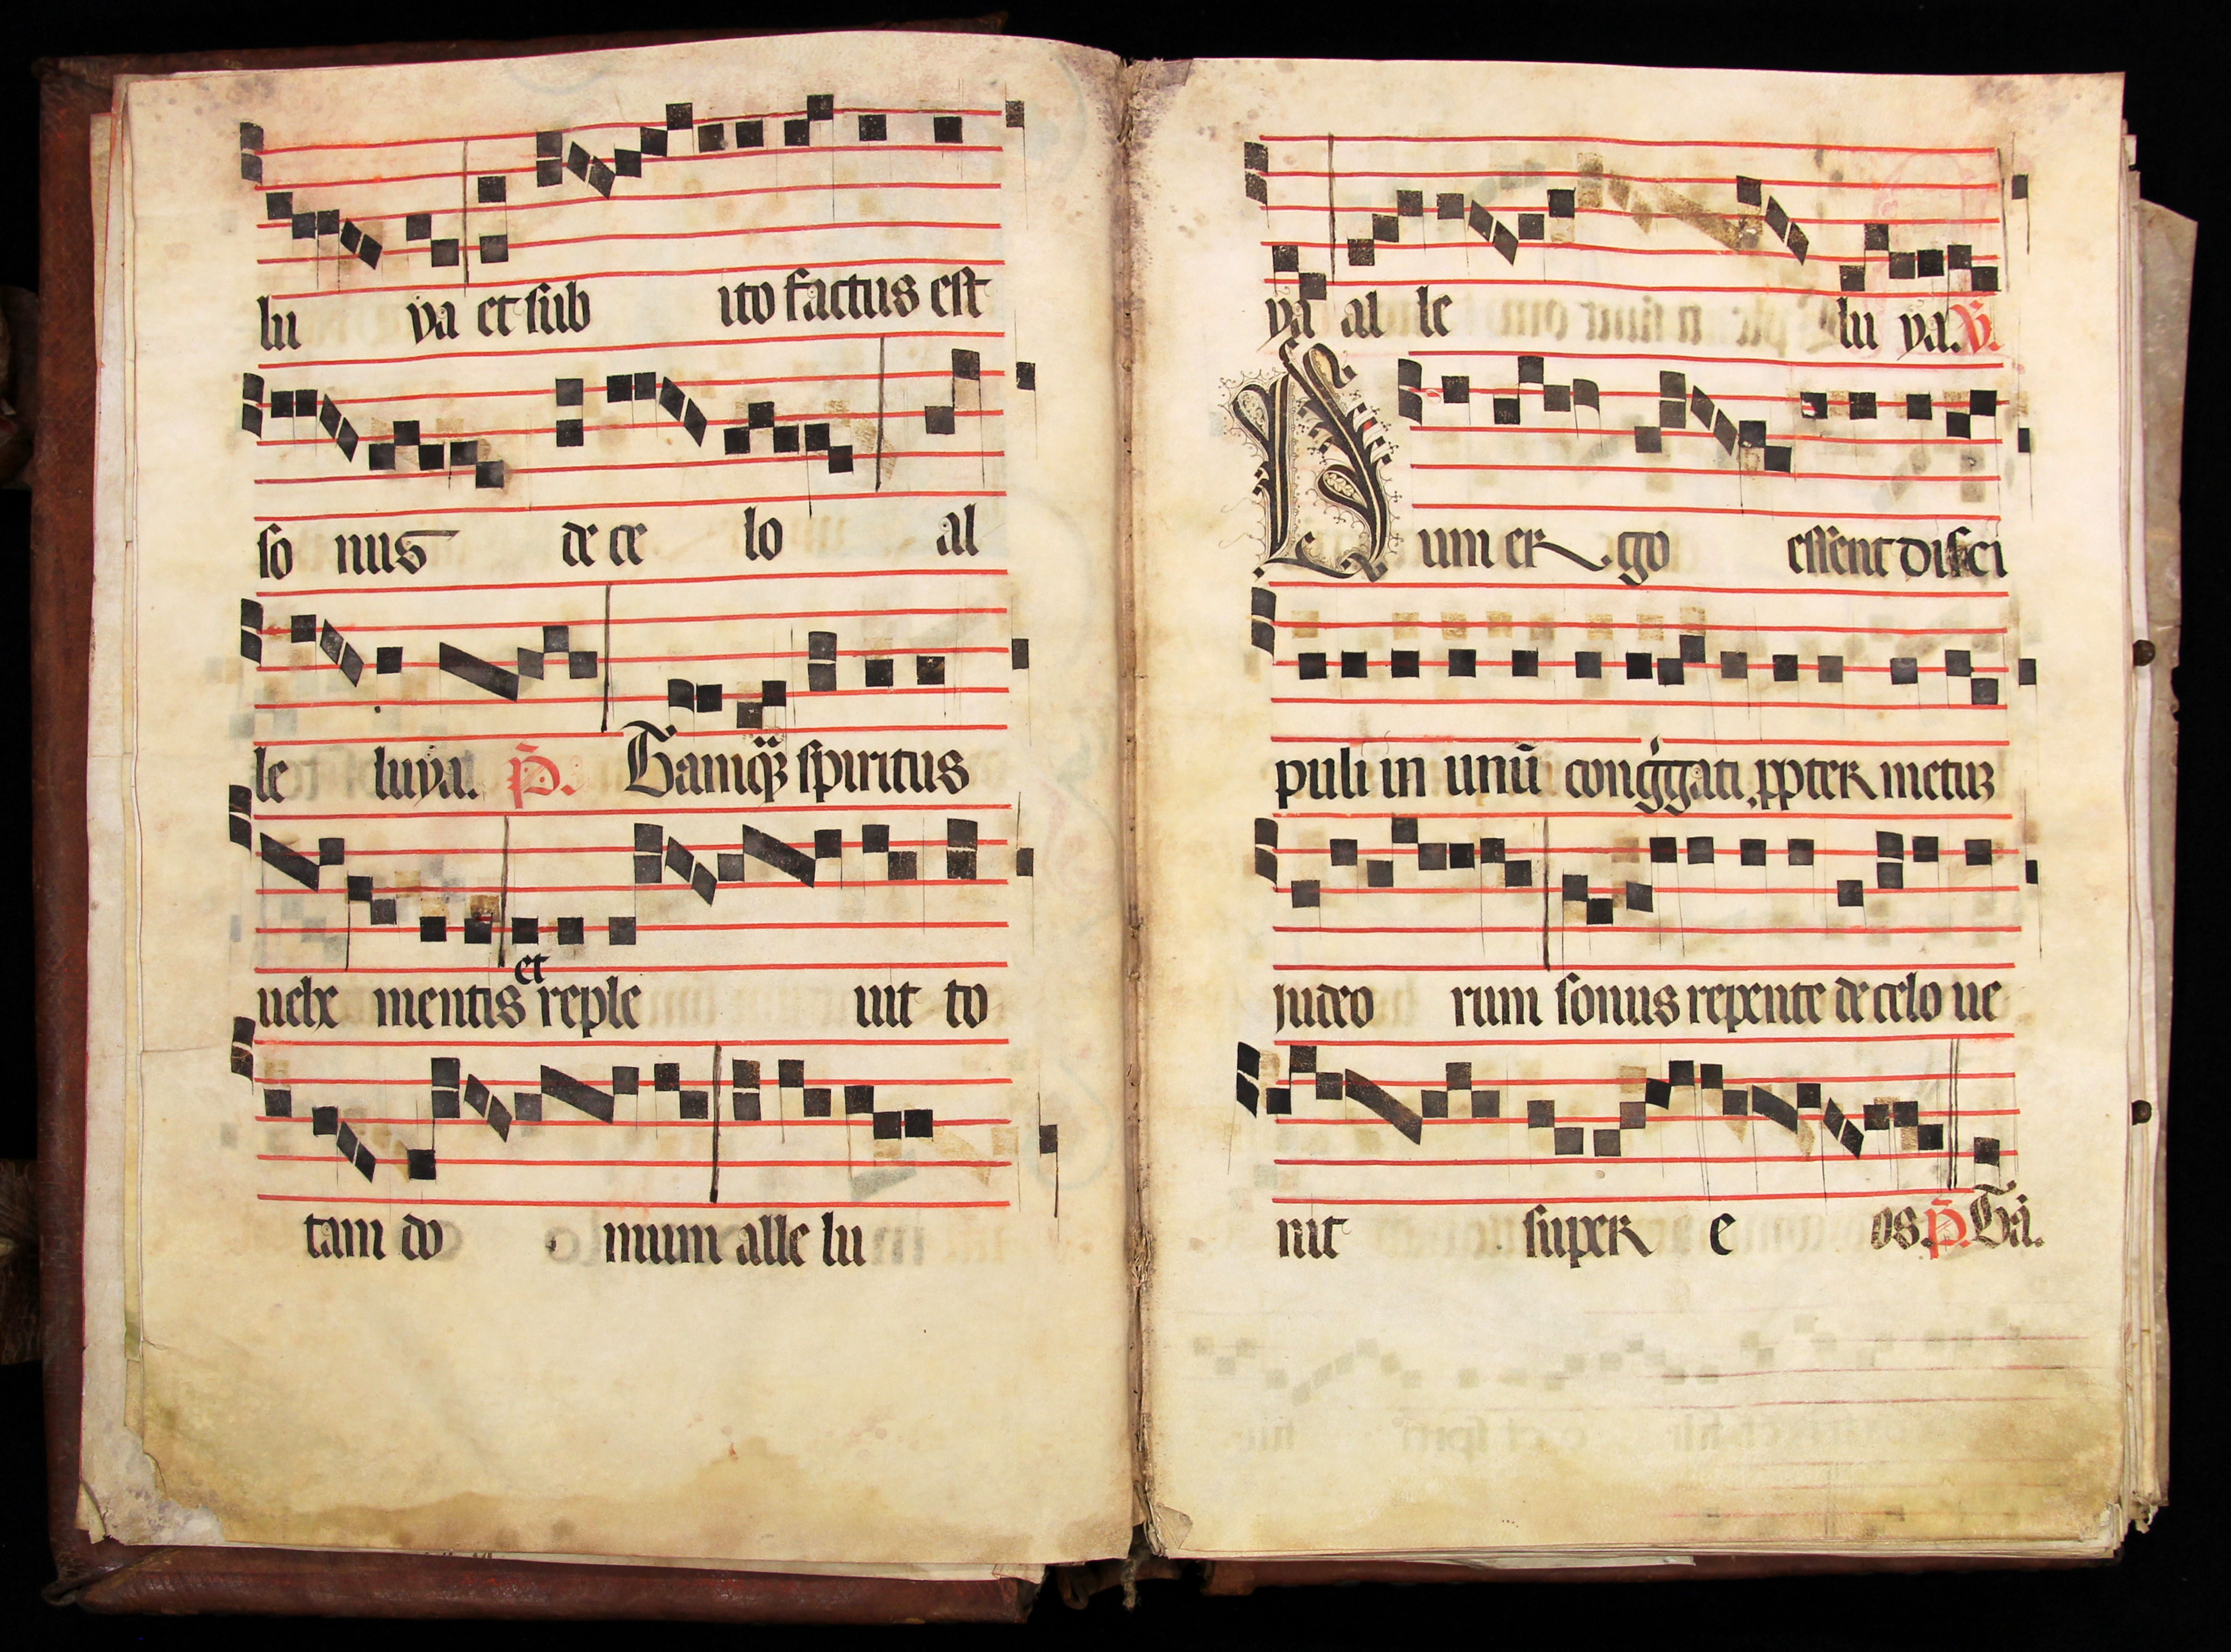 lu ya et sub ito factus est
so nus de ce lo al
le luya. p̄. Tamq̄ȝ spiritus
et
uehe mentis reple uit to
tam do mum alle lu
ya al le lu ya. ℣.
Dum er go essent disci
puli in unū cong̍gati ꝓpter metuȝ
iudeo rum sonus repente de celo ue
nit super e os. p̄. Tā.